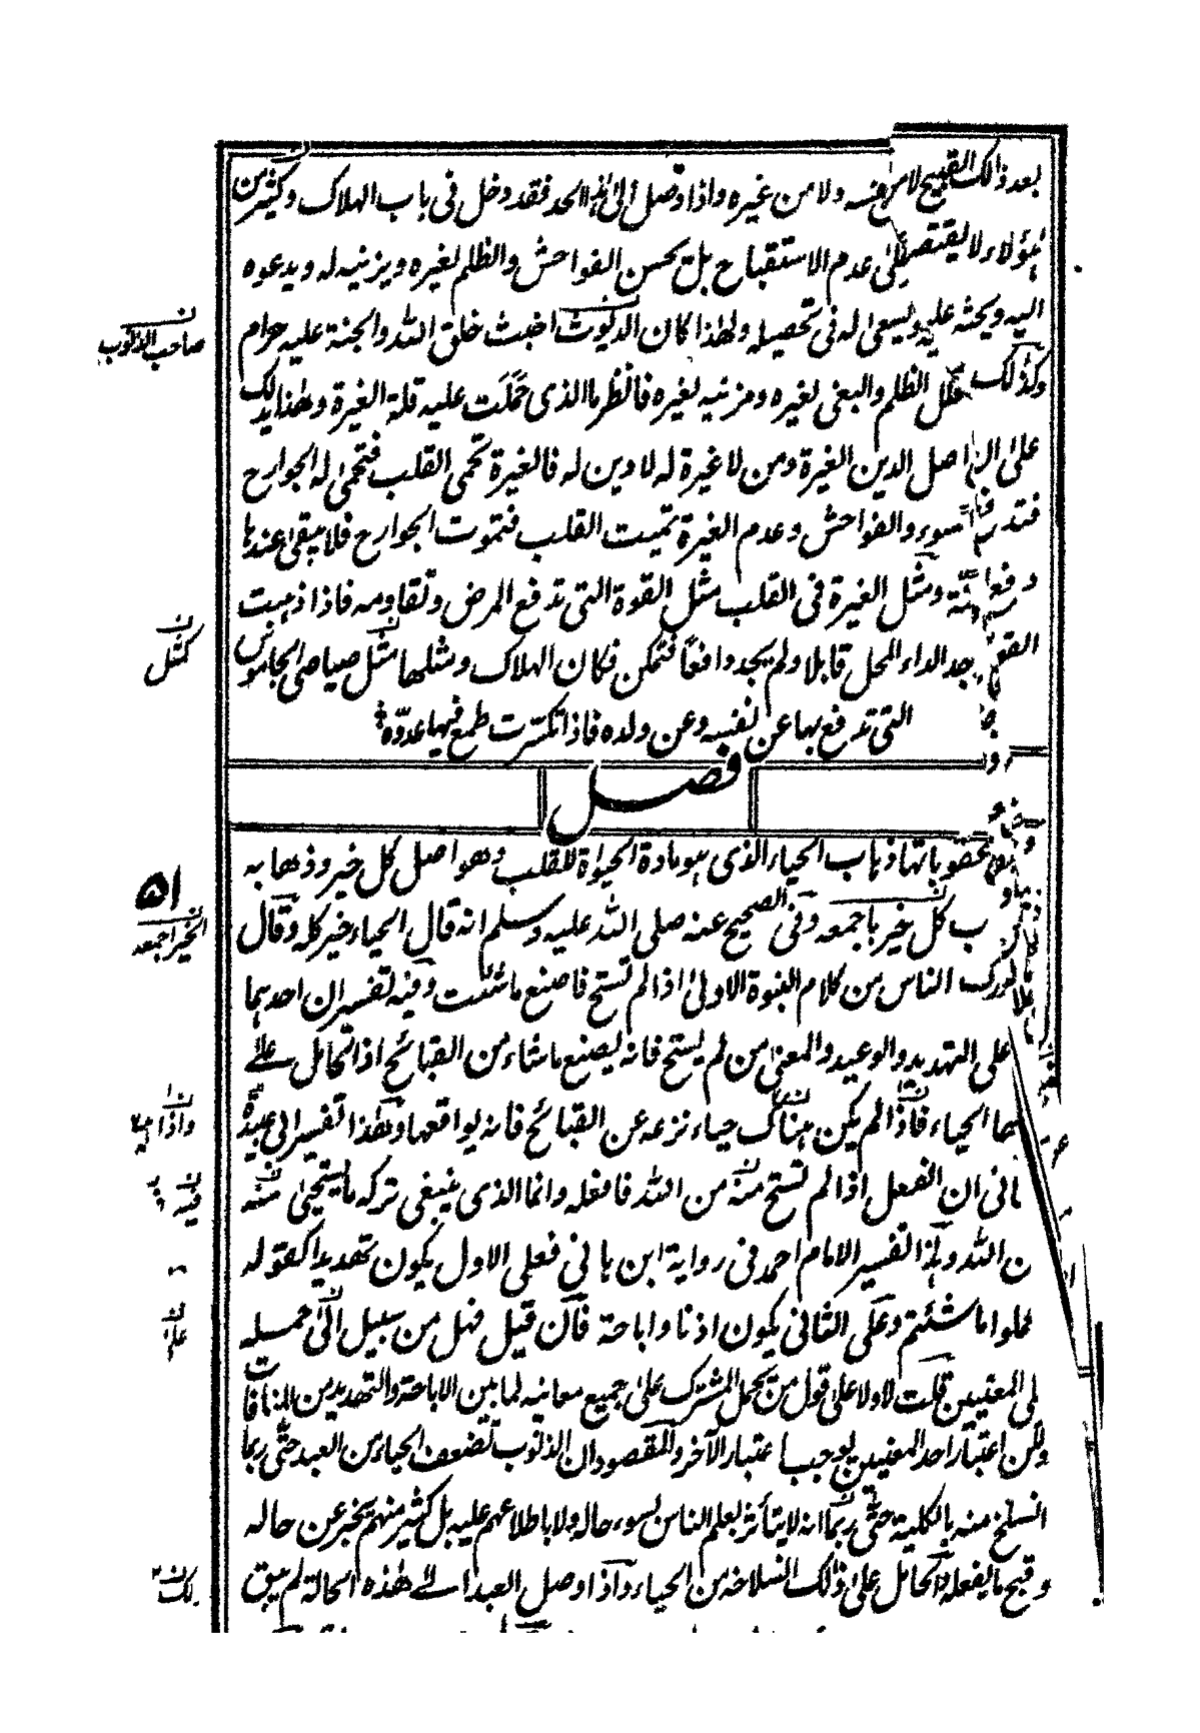 بعد ذالك القبيح لا من نفسه ولا من غيره واذا وصل الى هذا الحد فقد دخل فى باب الهلاك وكثير من
هؤلاء لا يقتصر على عدم الاستقباح بل يحسن الفواحش والظلم لغيره ويزينه له ويدعوه
اليه ويحثه عليه ويسعى له فى تحصيله ولهذا كان الديوث اخبث خلق الله والجنة عليه حرام
صاحب الذنوب
وكذلك محلل الظلم والبغى لغيره ومزينه لغيره فانظر ما الذى حملت عليه قلة الغيرة وهذا يدلك
على ان اصل الدين الغيرة ومن لا غيرة له لا دين له فالغيرة تحمى القلب فتحمى له الجوارح
فتدفع السوء والفواحش وعدم الغيرة تميت القلب فتموت الجوارح فلا يبقى عندها
دفع البتة ومثل الغيرة فى القلب مثل القوة التى تدفع المرض وتقاومه فاذا ذهبت
كمثل
القوة وجد الداء المحل قابلا ولم يجد دافعا فتمكن فكان الهلاك ومثلها مثل صياصى الجاموس
التى تدفع بها عن نفسه وعن ولده فاذا تكسرت طمع فيها عدوه
فصل
عقوباتها ذهاب الحياء الذى هو مادة الحيوة للقلب وهو اصل كل خير وذهابه
۵۱
ب كل خير باجمعه وفى الصحيح عنه صلى الله عليه وسلم انه قال الحياء خير كله وقال
الخير اجمعه
ادرك الناس من كلام النبوة الاولى اذا لم تستح فاصنع ما شئت وفيه تفسيران احدهما
على التهديد والوعيد والمعنى من لم يستح فانه يصنع ما شاء من القبائح اذ الحامل على
ها الحياء فاذا لم يكن هناك حياء نزعه عن القبائح فانه يواقعها وهذا تفسير ابى عبيدة
واذا
انى ان الفعل اذا لم تستح منه من الله فافعله وانما الذى ينبغى تركه ما يستحيى منه
فيه
ن الله وهذا تفسير الامام احمد فى رواية ابن هانى فعلى الاول يكون تهديدا كقوله
ملوا ما شئتم وعلى الثانى يكون اذنا واباحة فان قيل فهل من سبيل الى حمله
على
لى المعنيين قلت لا ولا على قول من يحمل المشترك على جميع معانيه لما بين الاباحة والتهديد من المنافات
ولكن اعتبار احد المعنيين يوجب اعتبار الآخر والمقصود ان الذنوب تضعف الحياء من العبد حتى ربما
انسلخ منه بالكلية حتى ربما انه لا يتأثر بعلم الناس بسوء حاله ولا باطلاعهم عليه بل كثير منهم يخبر عن حاله
وقبح ما يفعله والحامل على ذلك انسلاخه من الحياء واذا وصل العبد الى هذه الحالة لم يبق